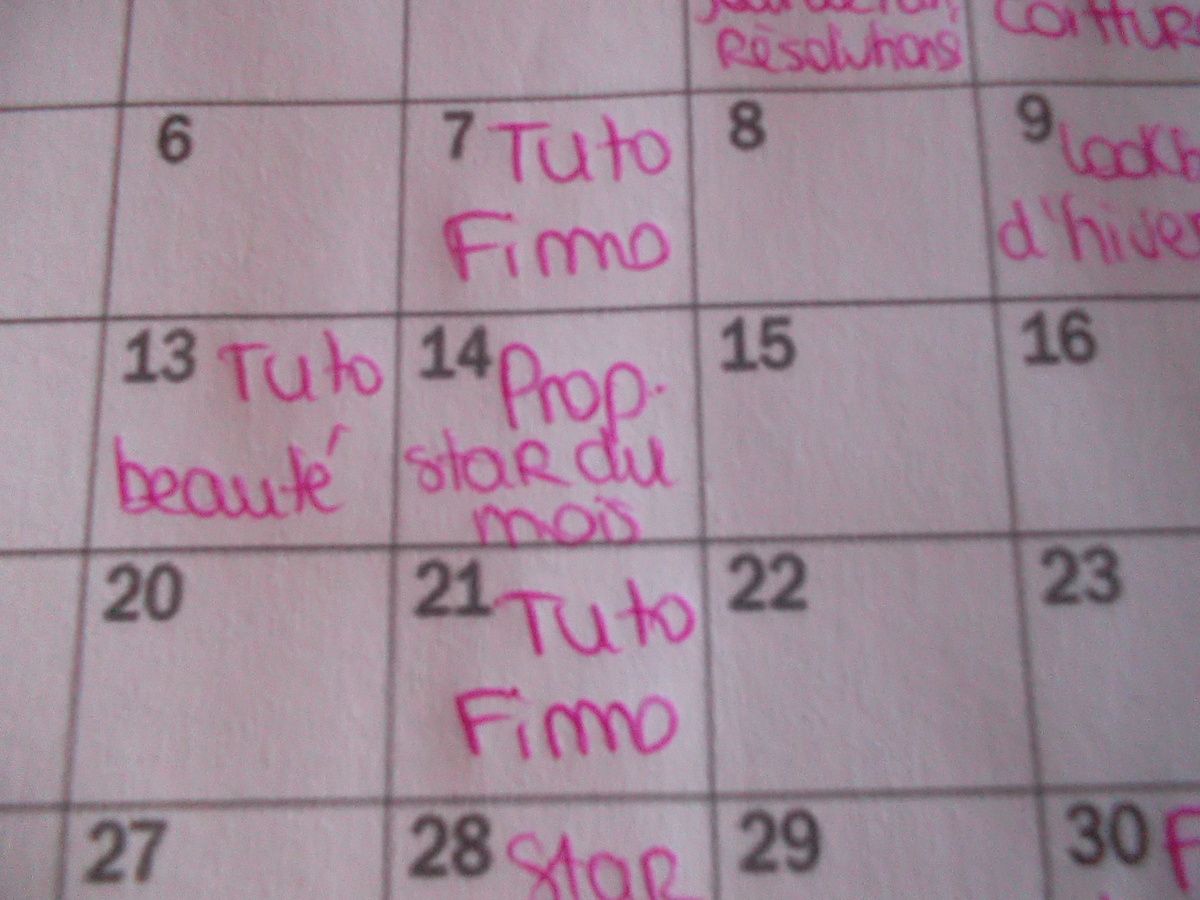 Résolutions
6
7 Tuto
Fimo
8
9
d'hiver
13 Tuto
beauté
14 Prop.
star du
mois
15
16
20
21 Tuto
Fimo
22
23
27
28 Star
29
30